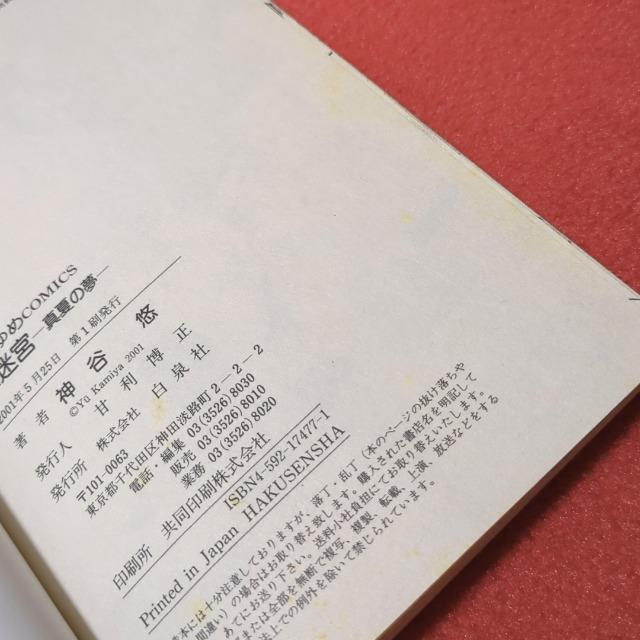 ゆめCOMICS
迷宮―真夏の夢―
2001年5月25日 第1刷発行
著者 神谷 悠
©Yu Kamiya 2001
発行人 甘利博正
発行所 株式会社 白泉社
〒101-0063
東京都千代田区神田淡路町2-2-2
電話・編集 03(3526)8030
販売 03(3526)8010
業務 03(3526)8020
印刷所 共同印刷株式会社
ISBN4-592-17477-1
Printed in Japan HAKUSENSHA
本には十分注意しておりますが、落丁、乱丁(本のページの抜け落ちや
間違い)の場合はお取り替え致します。購入された書店名を明記して
あてにお送り下さい。送料小社負担にてお取り替えいたします。
または全部を無断で複写、複製、転載、上演、放送などをする
法上での例外を除いて禁じられています。